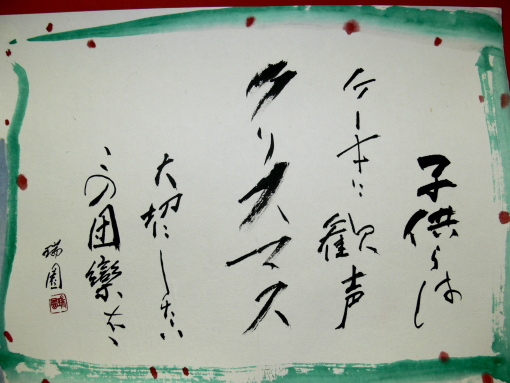 子供らは
ケーキに歓声
クリスマス
大切にしたい
この団欒を
瑞園